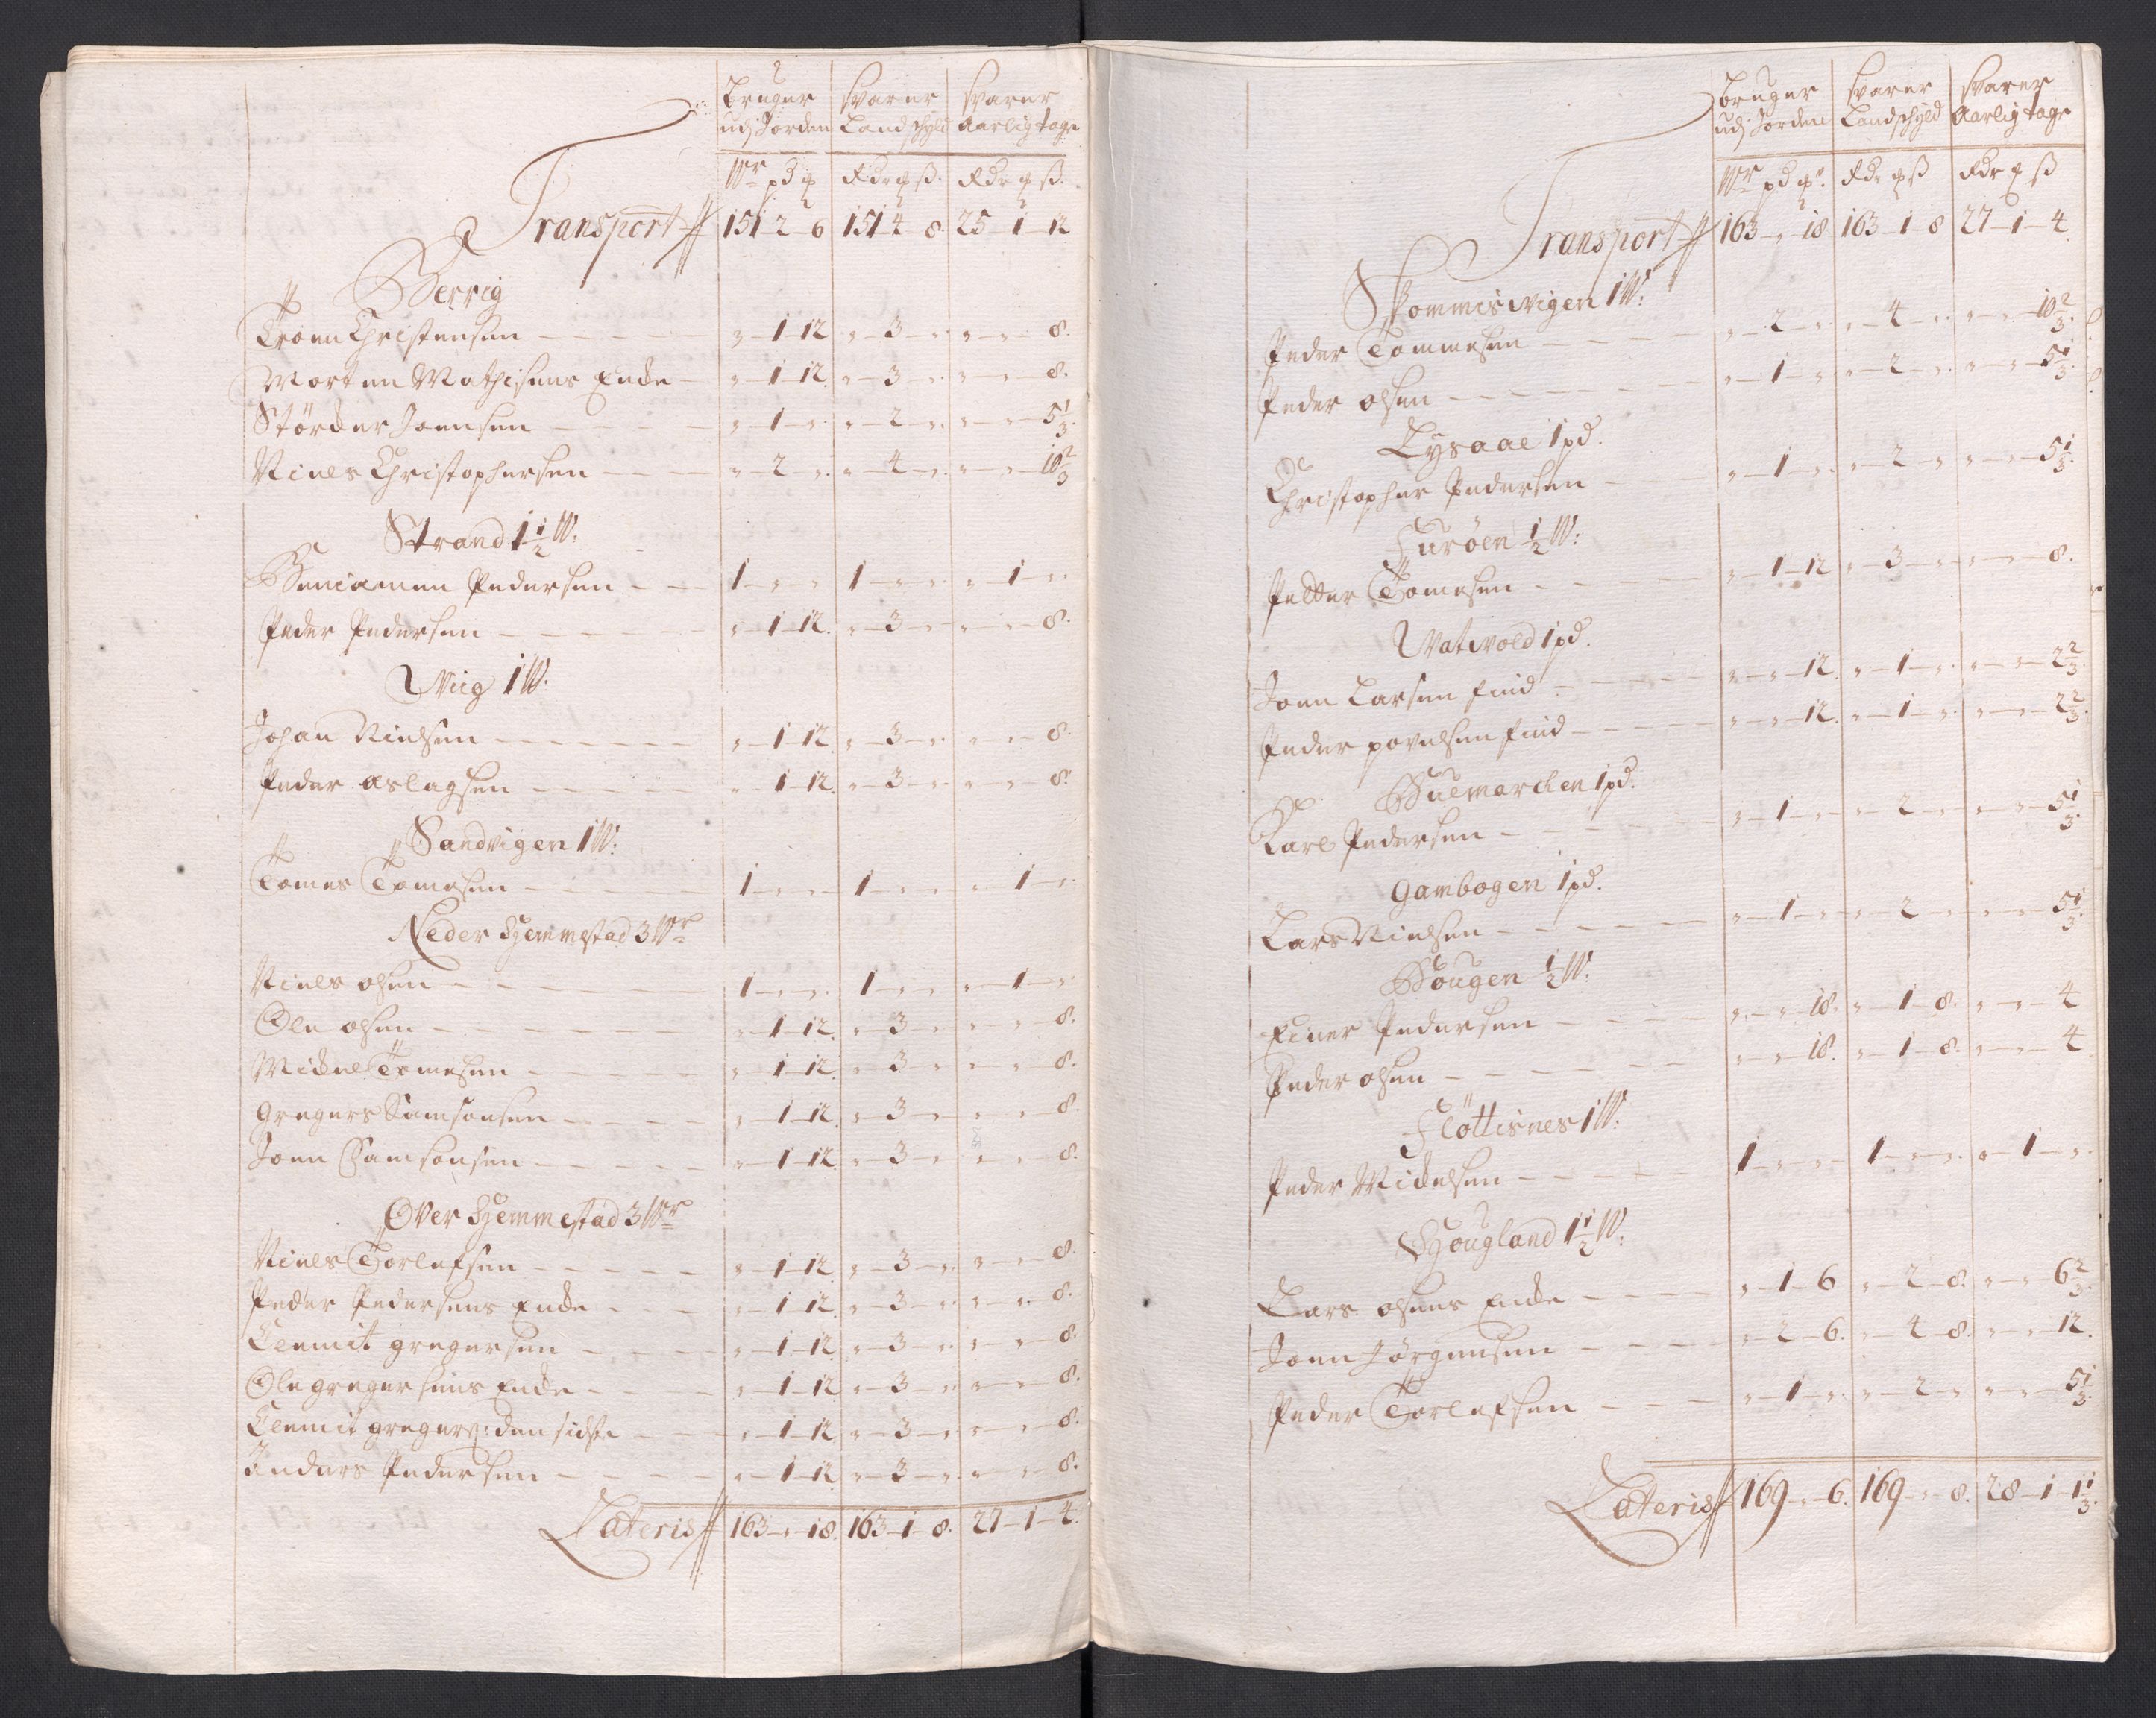 bruger udj Jorden | svarer Landschyld | svarer Aarlig tage
Wr pd ₥ | Rdr ₥ ß. | Rdr ₥ ß.
Transport 151-2-6 | 151-4-8 | 25-1-12
Berrig
Troen Christensen - - - „-1-12 | „-3-„ | „-„-8.
Morten Mathisens Encke „-1-12. | „-3-„ | „-„-8.
Störcker Joensen - - - „-1-„ | „-2-„ | „-„-5 1/3.
Niels Christophersen - - „-2-„ | „-4-„ | „-„-10 2/3
Strand 1 1/2 W:
Beniamen Pedersen - - 1-„-„ | 1-„-„ | „-1-„
Peder Pedersen - - - „-1-12. | „-3-„ | „-„-8.
Wiig 1 W.
Johan Nielsen - - - „-1-12. | „-3-„ | „-„-8.
Peder Aslagsen - - - „-1-12. | „-3-„ | „-„-8.
Sandvigen 1 W:
Tomes Tomesen - - - 1-„-„ | 1-„-„ | „-1-„
Neder Hemmestad 3 Wr
Niels olsen - - - 1-„-„ | 1-„-„ | „-1-„
Ole olsen - - - „-1-12. | „-3-„ | „-„-8.
Mickel Tomesen - - - „-1-12. | „-3-„ | „-„-8.
Gregers Samsonsen - - - „-1-12. | „-3-„ | „-„-8.
Joen Samsonsen - - - „-1-12. | „-3-„ | „-„-8.
Over Hemmestad 3 Wr
Niels Torlefsen - - - „-1-12. | „-3-„ | „-„-8.
Peder Pedersens Encke - - „-1-12. | „-3-„ | „-„-8.
Clemit gregersen - - - „-1-12. | „-3-„ | „-„-8.
Ole gregersens Encke - - „-1-12. | „-3-„ | „-„-8.
Clemit gregers: den sidste - „-1-12. | „-3-„ | „-„-8.
Anders Pedersen - - - „-1-12. | „-3-„ | „-„-8.
Lateris 163-„-18. | 163-1-8. | 27-1-4.
bruger udj Jorden | svarer Landschyld | svarer Aarlig tage
Wr pd ₥. | Rdr ₥ ß | Rdr ₥ ß
Transport 163-„-18 | 163-1-8 | 27-1-4.
Skommisvigen 1 W:
Peder Tommesen - - - „-2-„ | „-4-„ | „-„-10 2/3.
Peder olsen - - - „-1-„ | „-2-„ | „-„-5 1/3.
Lysaae 1 pd.
Christopher Pedersen - „-1-„ | „-2-„ | „-„-5 1/3.
Furöen 1/2 W:
Petter Tomesen - - - „-1-12 | „-3-„ | „-„-8.
Watwold 1 pd.
Joen Larsen find - - - „-„-12. | „-1-„ | „-„-2 2/3.
Peder povelsen find - - - „-„-12. | „-1-„ | „-„-2 2/3.
Buemarchen 1 pd.
Karl Pedersen - - - „-1-„ | „-2-„ | „-„-5 1/3.
Gambogen 1 pd.
Lars Nielsen - - - „-1-„ | „-2-„ | „-„-5 1/3.
Bougen 1/2 W:
Einer Pedersen - - - „-„-18. | „-1-8. | „-„-4
Peder olsen - - - „-„-18. | „-1-8. | „-„-4
Flöttisnes 1 W:
Peder Mickelsen - - - 1-„-„ | 1-„-„ | „-1-„
Hougland 1 1/2 W:
Lars olsens Encke - - - „-1-6 | „-2-8. | „-„-6 2/3.
Joen Jörgensen - - - „-2-6. | „-4-8. | „-„-12.
Peder Torlefsen - - - „-1-„ | „-2-„ | „-„-5 1/3.
Lateris 169-„-6. | 169-„-8. | 28-1-1 1/3.